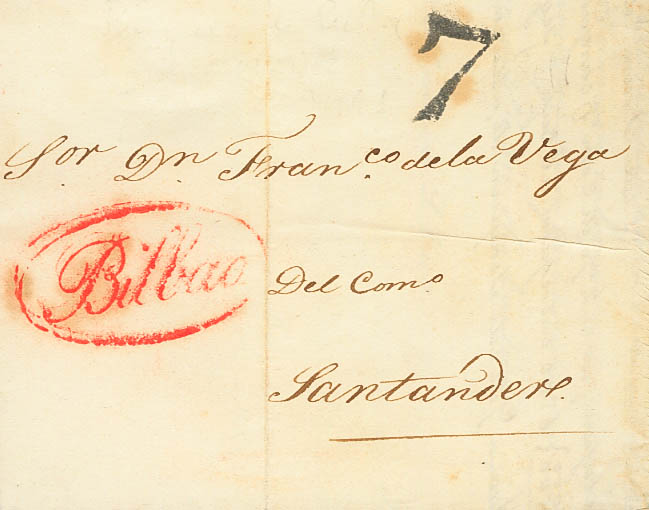 7
Sor Dn Franco de la Vega
Bilbao
Del Como
Santander.